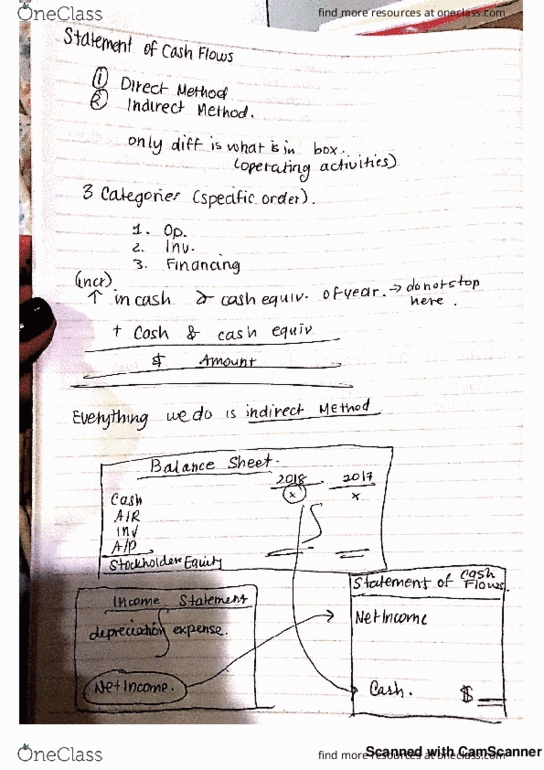 OneClass
find more resources at oneclass.com
Statement of Cash Flows
① Direct Method
② Indirect Method.
only diff is what is in box.
(operating activities)
3 Categories (specific order).
1. Op.
2. Inv.
3. Financing
(incr)
↑ in cash & cash equiv. of year. → do not stop
here.
+ Cash & cash equiv
$ Amount
Everything we do is indirect Method
Balance Sheet.
2018 2017
x x
Cash
A/R
Inv
A/P
Stockholders Equity
Statement of Cash
Flows.
Income Statement
Net Income
depreciation expense.
Net Income.
Cash. $
OneClass
find more resources at oneclass.com
Scanned with CamScanner